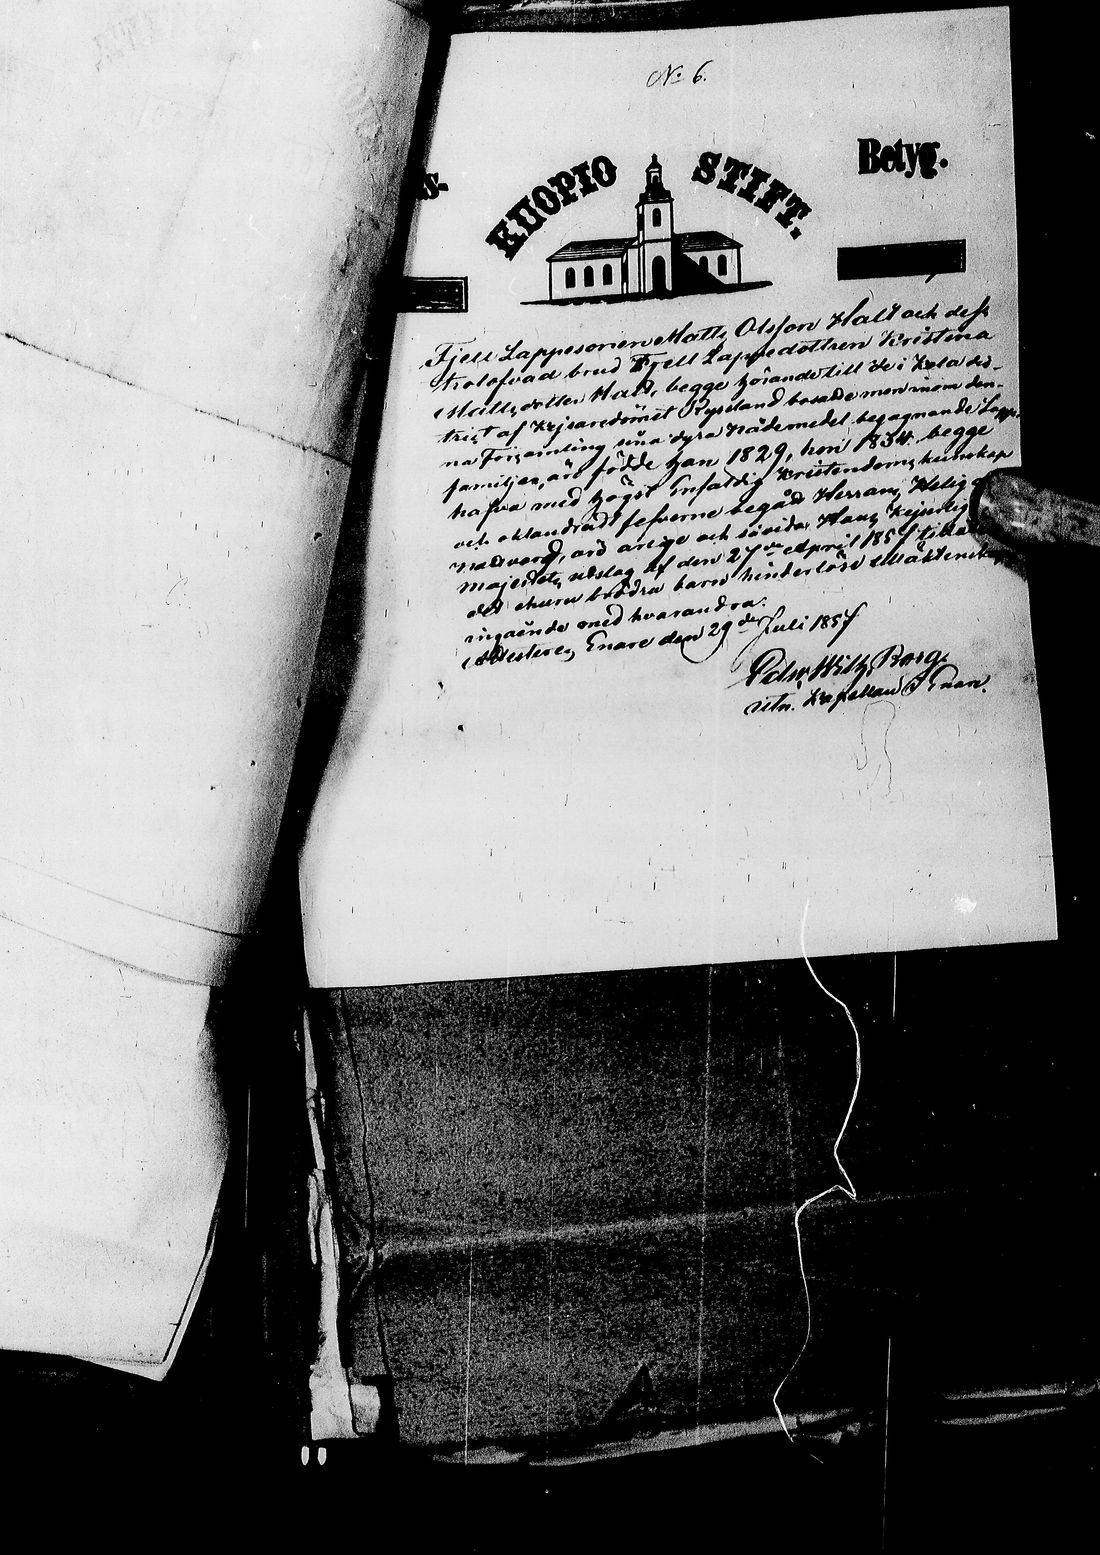 No 6.
KUOPIO STIFT.
Betyg.
Fjell Lappesonen Matts Olsson Halt och dess
trolofvad brud Fjell Lappedottren Kristina
Mattsdotter Halt, begge hörande till de i Kola dis-
trict af Kejsaredömet Ryssland bosatte men inom den-
na Församling sina dyra Nådemedel begagnande Lapp-
familjer, äro födde han 1829, hon 1834. begge
hafva med högst Enfaldig Kristendoms kunskap
och oklandradt lefverne begådt Herrans Helige
nattvard, äro ärlige och såvida Hans Kejserlig
majestets utslag af den 27de April 1857
det ehuru brödra barn hinderlöse Mäktenskap
ingående med hvarandra.
Attesteres, Enare den 29de Juli 1857
Petr. Wilh. Borg.
Utn. Kapellan i Enare.